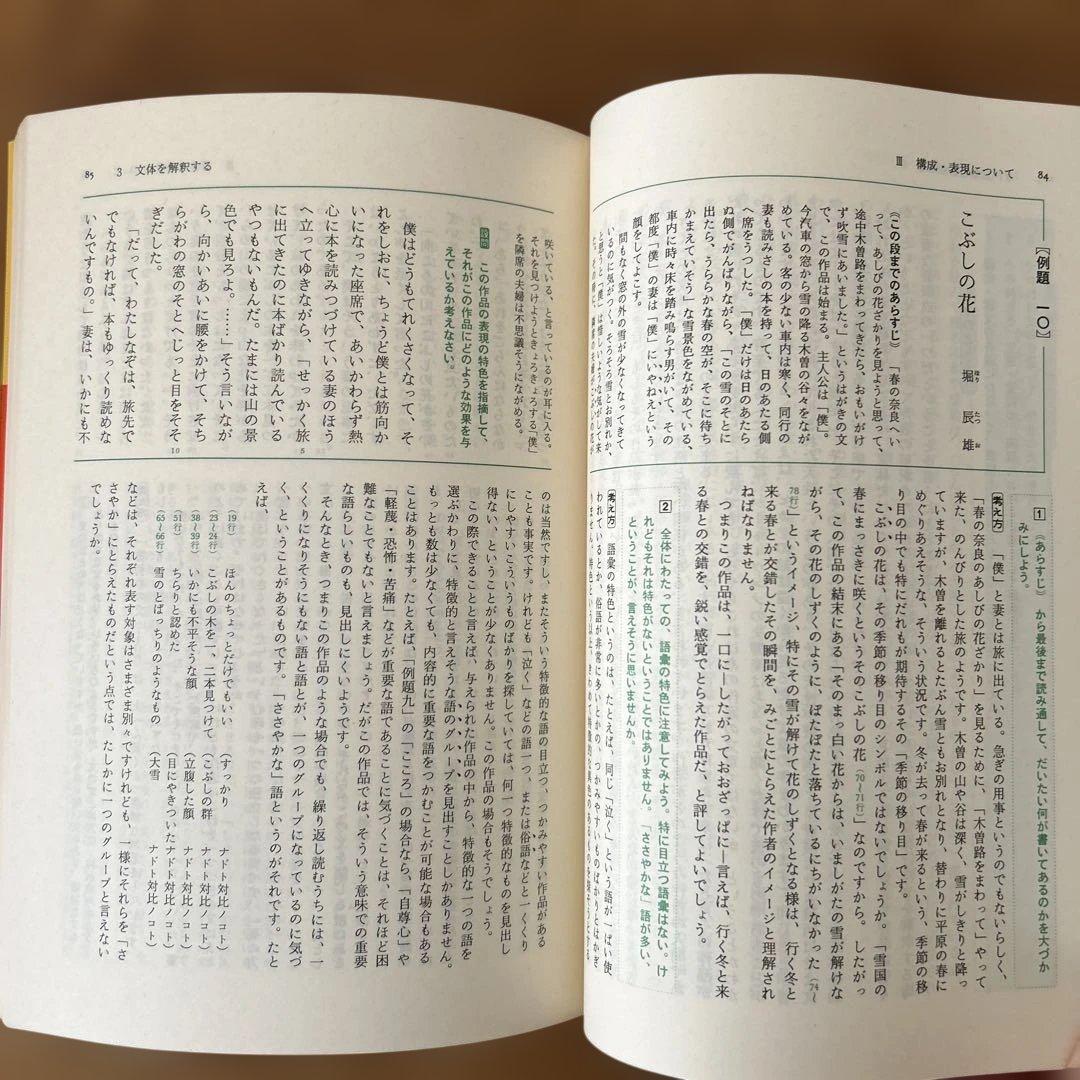 Ⅲ 構成・表現について 84
〔例題 一〇〕
こぶしの花 堀 辰雄
ほり たつ お
(この段までのあらすじ) 「春の奈良へい
って、あしびの花ざかりを見ようと思って、
途中木曽路をまわってきたら、おもいがけ
ず吹雪にあいました。」というはがきの文
で、この作品は始まる。主人公は「僕」。
今汽車の窓から雪の降る木曽の谷々をなが
めている。客の少ない車内は寒く、同行の
妻も読みさしの本を持って、日のあたる側
へ席をうつした。「僕」だけは日のあたら
ぬ側でがんばりながら、「この雪のそとに
出たら、うららかな春の空が、そこに待ち
かまえていそう」な雪景色をながめている。
車内に時々床を踏み鳴らす男がいて、その
都度「僕」の妻は「僕」にいやねえという
顔をしてよこす。
間もなく窓の外の雪が少なくなってきて
いるのに気がつく。そろそろ雪とお別れか、
と思うと「僕」は惜しいような気がして来
1 (あらすじ) から最後まで読み通して、だいたい何が書いてあるのかを大づか
みにしよう。
考え方 「僕」と妻とは旅に出ている。急ぎの用事というのでもないらしく、
「春の奈良のあしびの花ざかり」を見るために、「木曽路をまわって」やって
来た、のんびりとした旅のようです。木曽の山や谷は深く、雪がしきりと降っ
ていますが、木曽を離れるとたぶん雪ともお別れとなり、替わりに平原の春に
めぐりあえそうな、そういう状況です。冬が去って春が来るという、季節の移
り目の中でも特にだれもが期待するその「季節の移り目」です。
こぶしの花は、その季節の移り目のシンボルではないでしょうか。「雪国の
春にまっさきに咲くというそのこぶしの花(70〜71行)」なのですから。したがっ
て、この作品の結末にある「そのまっ白い花からは、いましがたの雪が解けな
がら、その花のしずくのように、ぽたぽたと落ちているにちがいなかった(74〜
78行)」というイメージ、特にその雪が解けて花のしずくとなる様は、行く冬と
来る春とが交錯したその瞬間を、みごとにとらえた作者のイメージと理解され
ねばなりません。
つまりこの作品は、一口に―したがっておおざっぱに―言えば、行く冬と来
る春との交錯を、鋭い感覚でとらえた作品だ、と評してよいでしょう。
2 全体にわたっての、語彙の特色に注意してみよう。特に目立つ語彙はない。け
れどもそれは特色がないということではありません。「ささやかな」語が多い、
ということが、言えそうに思いませんか。
考え方 語彙の特色というのは、たとえば、同じ「泣く」という語がいっぱい使
われているとか、俗語が非常に多いとかの、つかみやすいものばかりとはかぎ
85 3 文体を解釈する
咲いている、と言っているのが耳に入る。
それを見つけようときょろきょろする「僕」
を隣席の夫婦は不思議そうにながめる。
設問 この作品の表現の特色を指摘して、
それがこの作品にどのような効果を与
えているか考えなさい。
僕はどうもてれくさくなって、そ
れをしおに、ちょうど僕とは筋向か
いになった座席で、あいかわらず熱
心に本を読みつづけている妻のほう
へ立ってゆきながら、「せっかく旅
に出てきたのに本ばかり読んでいる
やつもないもんだ。たまには山の景
色でも見ろよ。……」そう言いなが
ら、向かいあいに腰をかけて、そち
らがわの窓のそとへじっと目をそそ
ぎだした。
「だって、わたしなぞは、旅先で
でもなければ、本もゆっくり読めな
いんですもの。」妻は、いかにも不
5
10
のは当然ですし、またそういう特徴的な語の目立つ、つかみやすい作品がある
ことも事実です。けれども「泣く」などの語一つ、または俗語などと一くくり
にしやすいこういうものばかりを探していては、何一つ特徴的なものを見出し
得ない、ということが少なくありません。この作品の場合もそうでしょう。
この際できることと言えば、与えられた作品の中から、特徴的な一つの語を
選ぶかわりに、特徴的と言えそうな語のグループを見出すことしかありません。
もっとも数は少なくても、内容的に重要な語をつかむことが可能な場合もある
ことはあります。たとえば、「例題九」の「こころ」の場合なら、「自尊心」や
「軽蔑・恐怖・苦痛」などが重要な語であることに気づくことは、それほど困
難なことでもないと言えましょう。だがこの作品では、そういう意味での重要
な語らしいものも、見出しにくいようです。
そんなとき、つまりこの作品のような場合でも、繰り返し読むうちには、一
くくりになりそうにもない語と語とが、一つのグループになっているのに気づ
く、ということがあるものです。「ささやかな」語というのがそれです。たと
えば、
(19行) ほんのちょっとだけでもいい (すっかり ナドト対比ノコト)
(23〜24行) こぶしの木を一、二本見つけて (こぶしの群 ナドト対比ノコト)
(38〜39行) いかにも不平そうな顔 (立腹した顔 ナドト対比ノコト)
(51行) ちらりと認めた (目にやきついた ナドト対比ノコト)
(65〜66行) 雪のとばっちりのようなもの (大雪 ナドト対比ノコト)
などは、それぞれ表す対象はさまざま別々ですけれども、一様にそれらを「さ
さやか」にとらえたものだという点では、たしかに一つのグループと言えない
でしょうか。